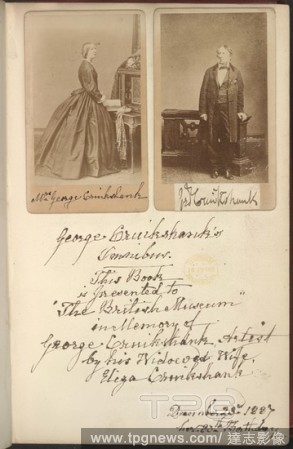 Mrs George Cruikshank
Geo Cruikshank
George Cruikshank's
Omnibus.
This Book
is presented to
"The British Museum"
in Memory of
George Cruikshank, Artist
by his Widowed Wife,
Eliza Cruikshank
December 23rd 1887
her 80th Birthday
TPG
www.tpgnews.com | 達志影像